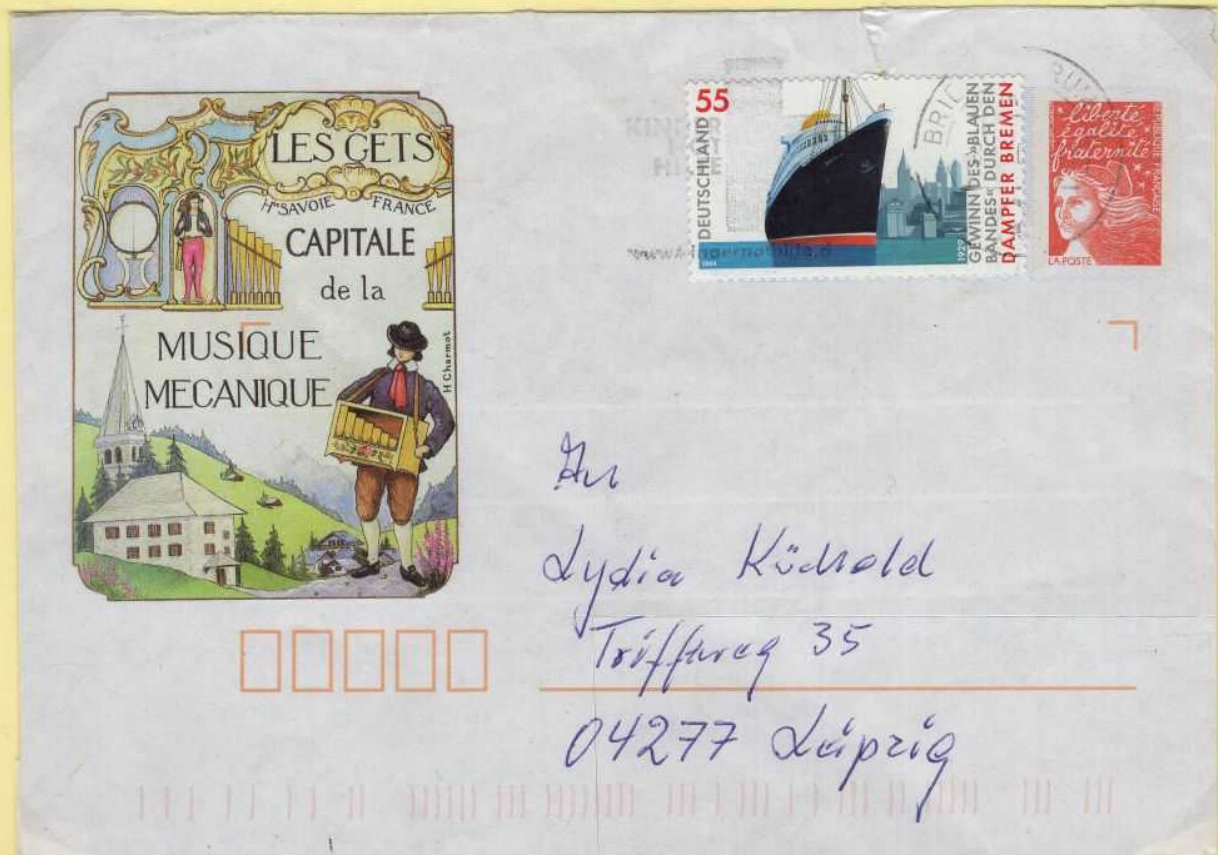 LES GETS
Hte SAVOIE FRANCE
CAPITALE
de la
MUSIQUE
MECANIQUE
H Charmot
55
DEUTSCHLAND
GEWINN DES »BLAUEN
BANDES« DURCH DEN
DAMPFER BREMEN
1929
liberté
égalité
fraternité
REPUBLIQUE FRANÇAISE
LA POSTE
An
Lydia
35
04277 Leipzig